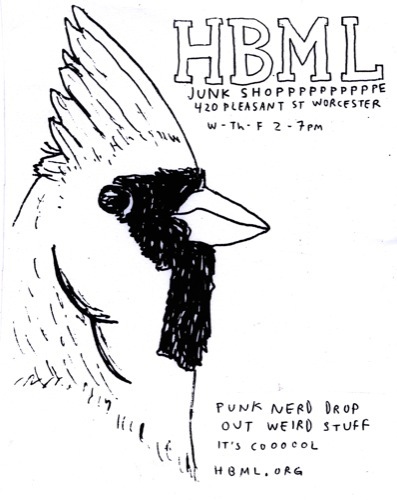 HBML
JUNK SHOPPPPPPPPPPPE
420 PLEASANT ST WORCESTER
W-Th-F 2-7pm
PUNK NERD DROP
OUT WEIRD STUFF
IT'S COOOCOL
HBML.ORG